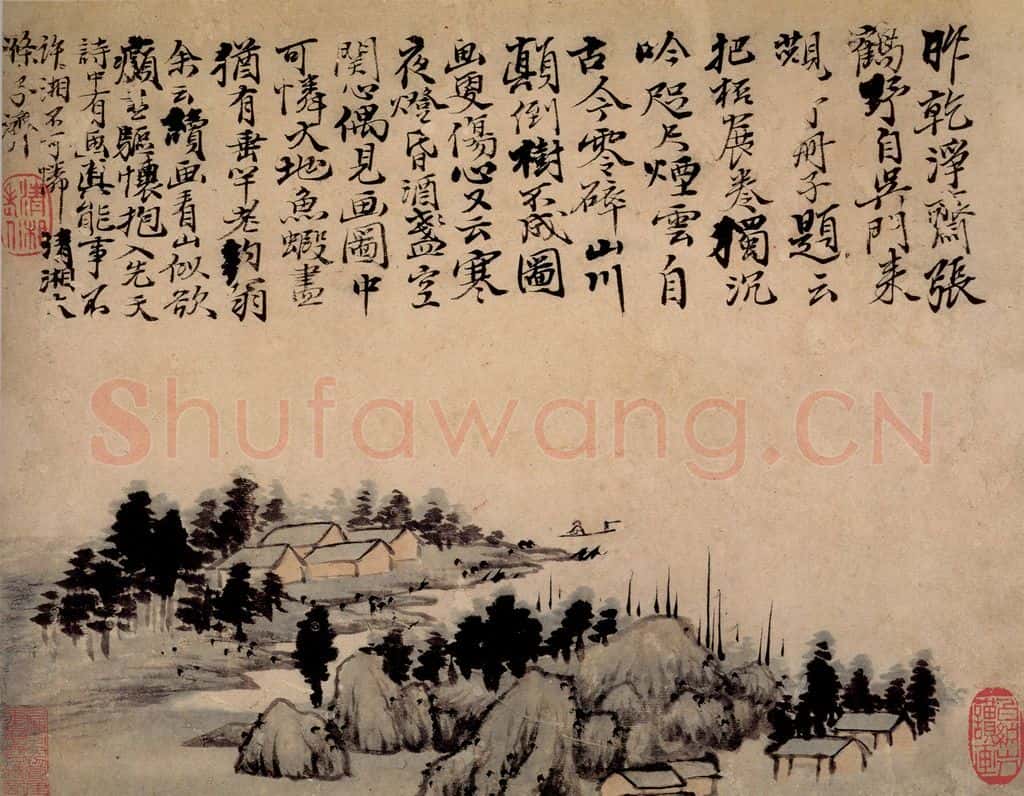 昨乾淨齋張
鶴野自吳門来
觀予冊子題云
把杯展卷獨沉
吟咫尺煙雲自
古今零碎山川
顛倒樹不成圖
画更傷心又云寒
夜燈昏酒盞空
関心偶見画圖中
可憐大地魚蝦盡
猶有垂竿老釣翁
余云讀画看山似欲
癲盡驅懷抱入先天
詩中有画真能事不
許湘不可憐 清湘大
滌子濟
Shufawang.CN